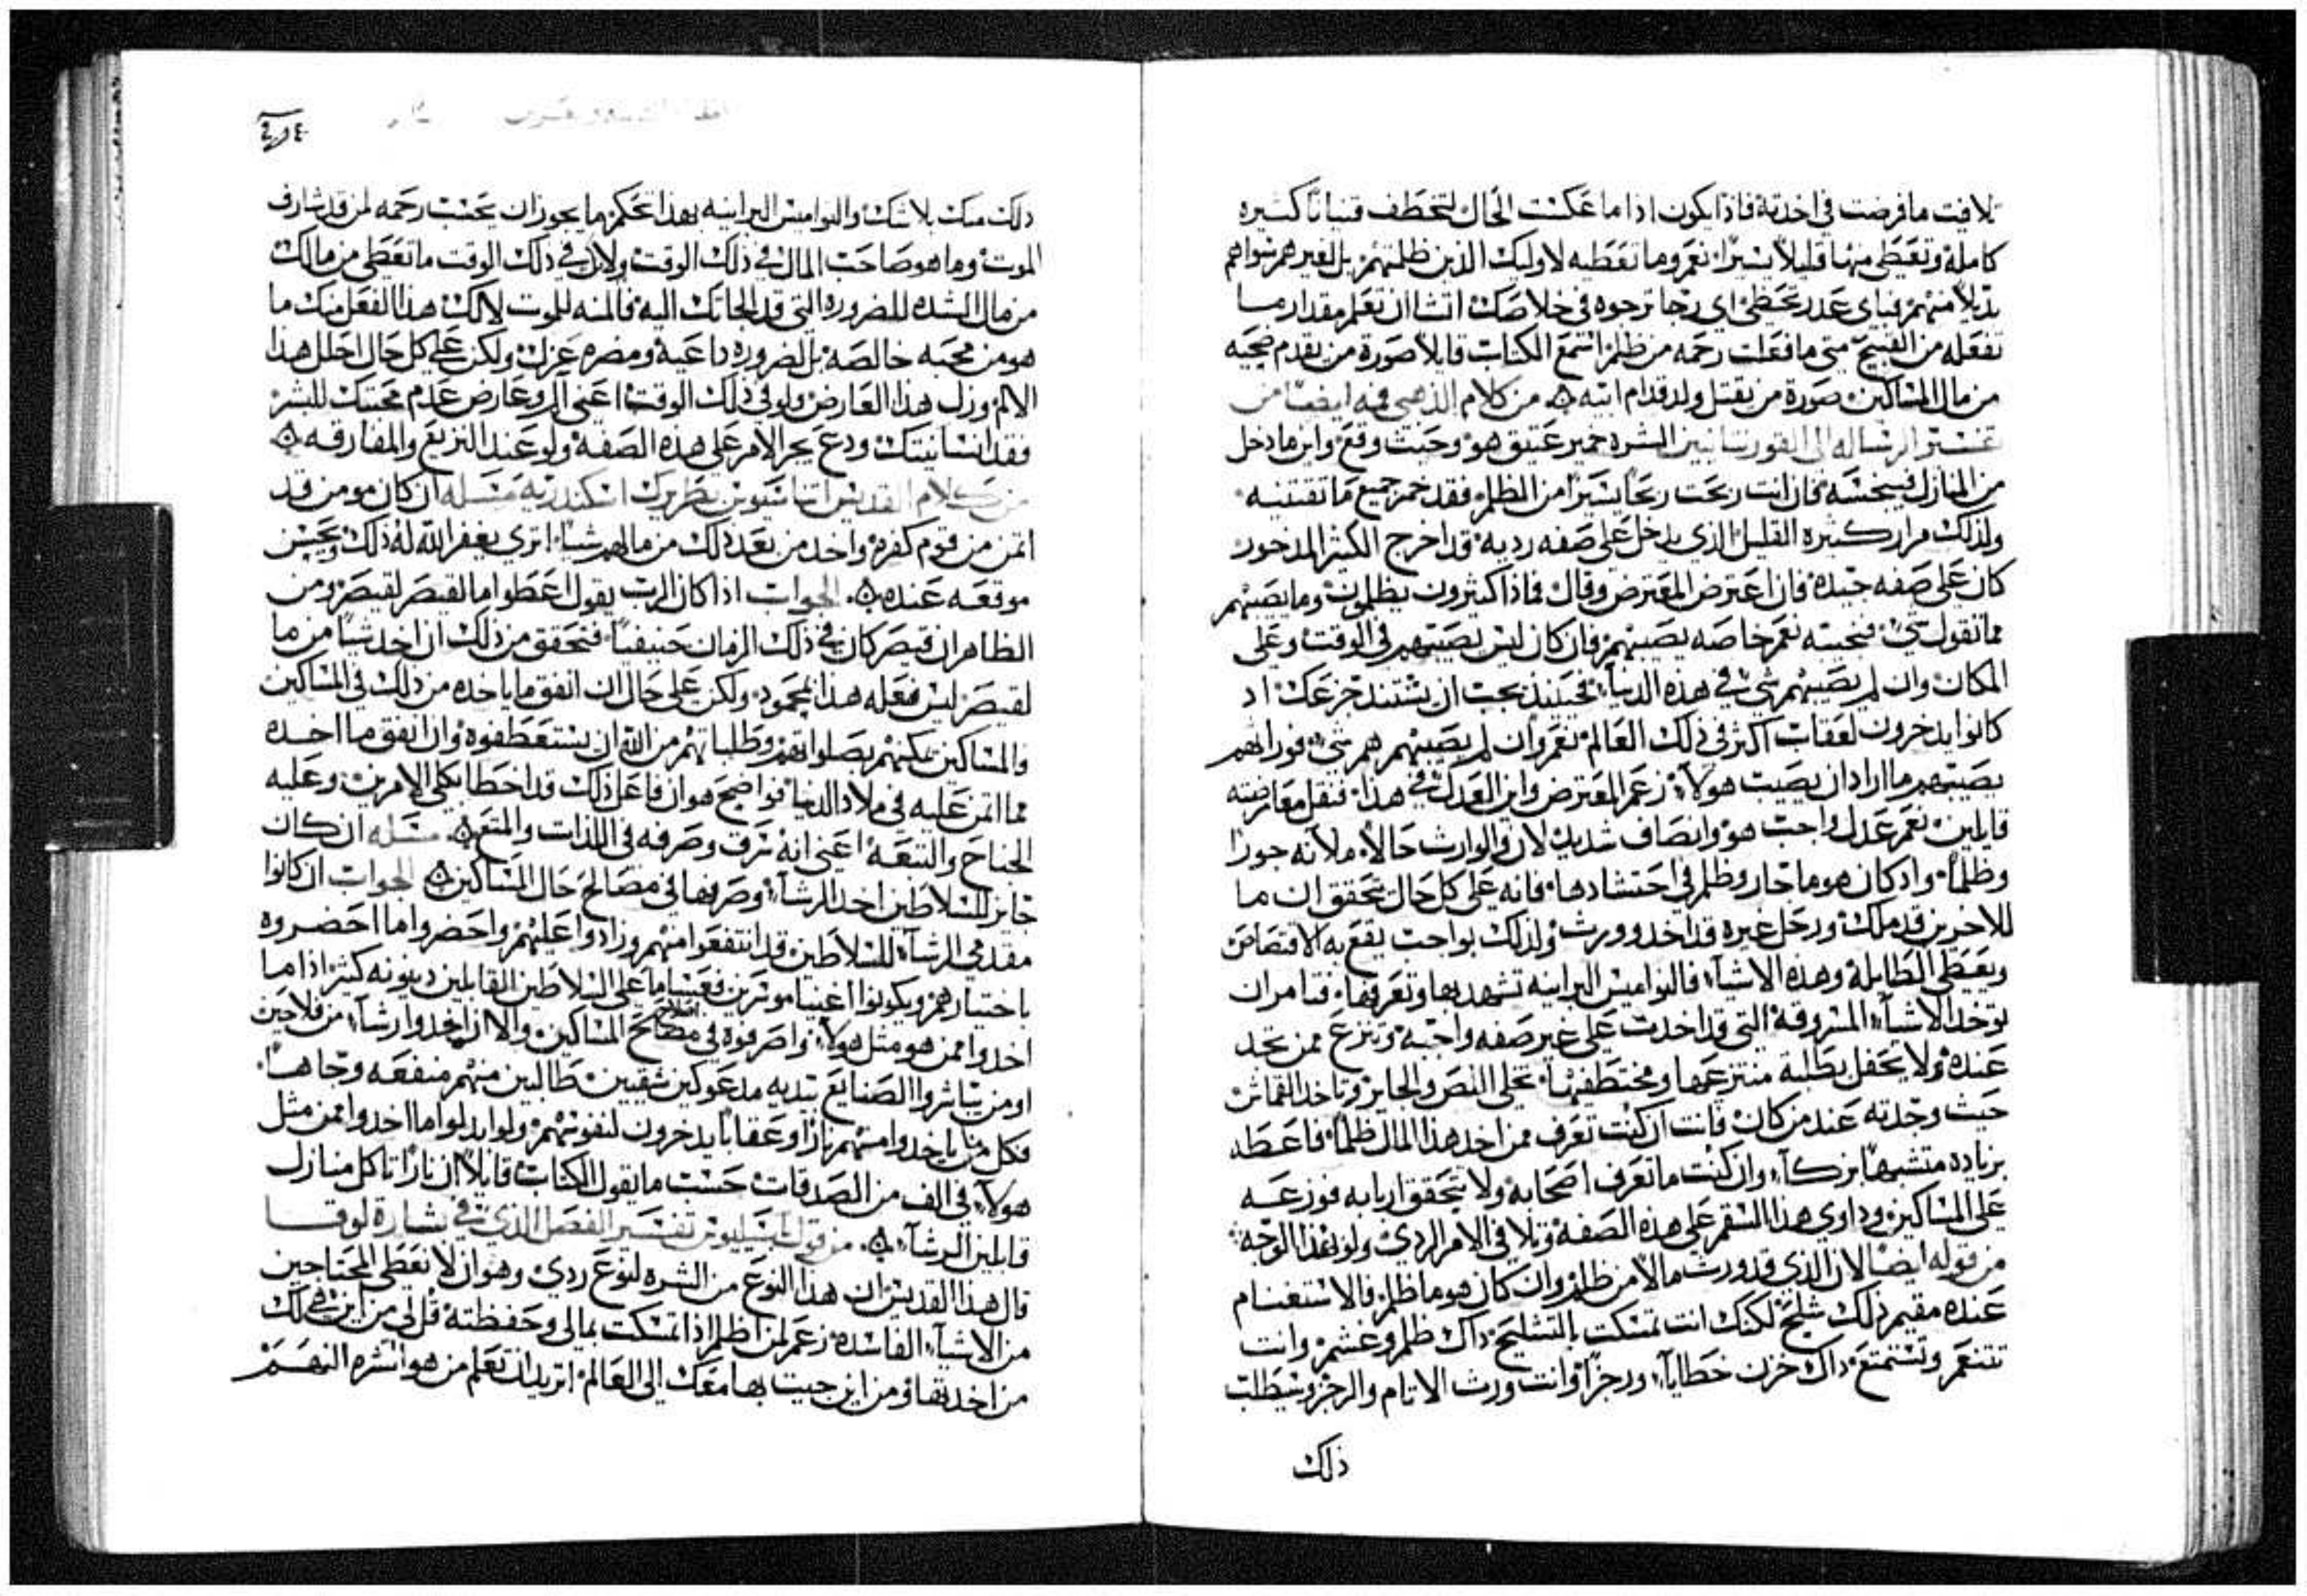 تلافيت ما فرضت في اخدته فاذا يكون اذا ما عكست الحال لتخطف قنياناً كثيره
كامله وتعطي منها قليلاً يسيراً نعم وما تعطيه لاوليك الذين ظلمتهم بل لغيرهم سواهم
بدلاً منهم فباي عدر تحظى اي رجا ترجوه في خلاصك اتشا ان تعلم مقدار ما
تفعله من القبيح متى ما فعلت رحمه من ظلم استمع الكتاب قايلاً صورة من يقدم ضحيه
من مال المساكين صورة من يقتل ولد قدام ابيه من كلام الذهبي فمه ايضاً من
تفسير الرساله الى القورنتانيين الشره خمير عتيق هو وحيث وقع واين ما دخل
من المنازل فينجسه فان انت ربحت ربحاً يسيراً من الظلم فقد خمر جميع ما تقتنيه
ولذلك مرار كثيره القليل الذي يدخل على صفه رديه قد اخرج الكثير المدخور
كان على صفه جيده فان اعترض المعترض وقال فماذا كثيرون يظلمون وما يصيبهم
مما تقول شي فنجيبه نعم خاصه يصيبهم فان كان ليس يصيبهم في الوقت وعلى
المكان وان لم يصيبهم شي في هذه الدنيا فحينيذ يجب ان يشتد جزعك اد
كانوا يدخرون لعقاب اكثر في ذلك العالم نعم وان لم يصيبهم هم شي فوراثهم
يصيبهم ما اراد ان يصيب هولآء زعم المعترض واين العدل في هذا فنقل معارضته
قايلين نعم عدل واجب هو وانصاف شديد لان الوارث حالاً ملآنه جوراً
وظلماً واد كان هو ما جار وظلم في احتشادها فانه على كل حال يتحقق ان ما
للاخرين قد ملك ودخل غيره قد اخد وورث ولذلك بواجب يقع به الاقتصاص
ويعطي المطايله وهده الاشيآء فالنواميس البرانيه تشهد بها وتعرفها فتامر ان
توخد الاشيآء المسروقه التي قد اخدت على غير صفه واجبه وتنزع ممن تجد
عنده ولا يحفل بطلبة منتزعها ومختطفيها تخلي اللص والجايز وتاخد القماش
حيث وجدته عند من كان فانت ان كنت تعرف ممن اخد هذا المال ظلماً فاعطه
بزياده متشبهاً بزكآء وان كنت ما تعرف اصحابه ولا يتحقق اربابه فوزعه
على المساكين وداوي هذا السقم على هذه الصفه وتلافى الامر الردي ولو بهذا الوجه
من قوله ايضاً الان الذي قد ورث مالاً من ظلم وان كان هو ما ظلم فالاستغنام
عنده مقيم ذلك شلح لكنك انت تمسكت بالتشليح داك ظلم وغشم وانت
تتنعم وتستمتع داك خزن خطايآء ورجزاً وانت ورث الاثام والرجز وسيطلب
ذلك
ذلك منك بلا شك والنواميس البرانيه بهذا تحكم ما يجوز ان يحسب رحمه لمن قد شارف
الموت وما هو صاحب المال في ذلك الوقت ولان في ذلك الوقت ما تعطي من مالك
من مال الشده للضروره التي قد الجاتك اليه فالمنه للموت لا لك هذا الفعل منك ما
هو من محبه خالصه بل ضروره داعيه ومضره عزل ولكن على كل حال احلل هذا
الالم وزل هذا العارض ولو في ذلك الوقت اعني الم وعارض عدم محبتك للبشر
فقد انسانيتك ودع يجر الامر على هذه الصفه ولو عند النزيع والمفارقه
من كلام القديس اثناسيوس بطريرك اسكندريه مسله ان كان مومن قد
اتمن من قوم كفره واخد من بعد ذلك من مالهم شيآء اترى يغفر الله له ذلك ويحسن
موقعه عنده الجواب اذا كان الرب يقول اعطوا ما لقيصر لقيصر ومن
الظاهر ان قيصر كان في ذلك الزمان حنيفياً فتحقق من ذلك ان اخد شياً من ما
لقيصر ليس فعله هذا بمحمود ولكن على حال ان انفق ما ياخده من ذلك في المساكين
والمساكين يمكنهم بصلواتهم وطلباتهم من الله ان يستعطفوه وان انفق ما اخده
مما اتمن عليه في ملاد الدنيا فواضح هو ان فاعل ذلك قد اخطا بكلي الامرين وعليه
الجناح والتبعه اعني انه سرق وصرفه في اللذات والمتع مسله ان كان
جايز للسلاطين اخد الرشآء وصرفها في مصالح حال المساكين الجواب ان كانوا
مقدمي الرشآء للسلاطين قد انتفعوا منهم وزادوا عليهم واحضروا ما احضروه
باختيارهم ويكونوا اغنيا موترين فعسا ما على السلاطين القابلين دينونه كثير اذا ما
اخدوا ممن هو مثل هولآء واصرفوه في مصالح المساكين والا ان اخدوا رشآء من فلاحين
او من يباشروا الصنايع بيديه مدعوكين شقيين طالبين منهم منفعه وجاهاً
فكل من ياخدوا منهم ناراً وعقاباً يدخرون لنفوسهم ولو ابدلوا ما اخدوا ممن مثل
هولآء في الف من الصدقات حسب ما يقول الكتاب قايلاً ان ناراً تاكل منازل
قابلين الرشآء من قول باسيليوس تفسير الفصل الذي في بشارة لوقا
قال هذا القديس ان هذا النوع من الشره لنوع ردي وهو ان لا تعطي المحتاجين
من الاشيآء الفاسده زعم لمن اظلم اذا تمسكت بمالي وحفظته قل لي من اين هي لك
من اخدتها ومن اين جيت بها معك الى العالم اتريد ان تعلم من هو الشره النهم